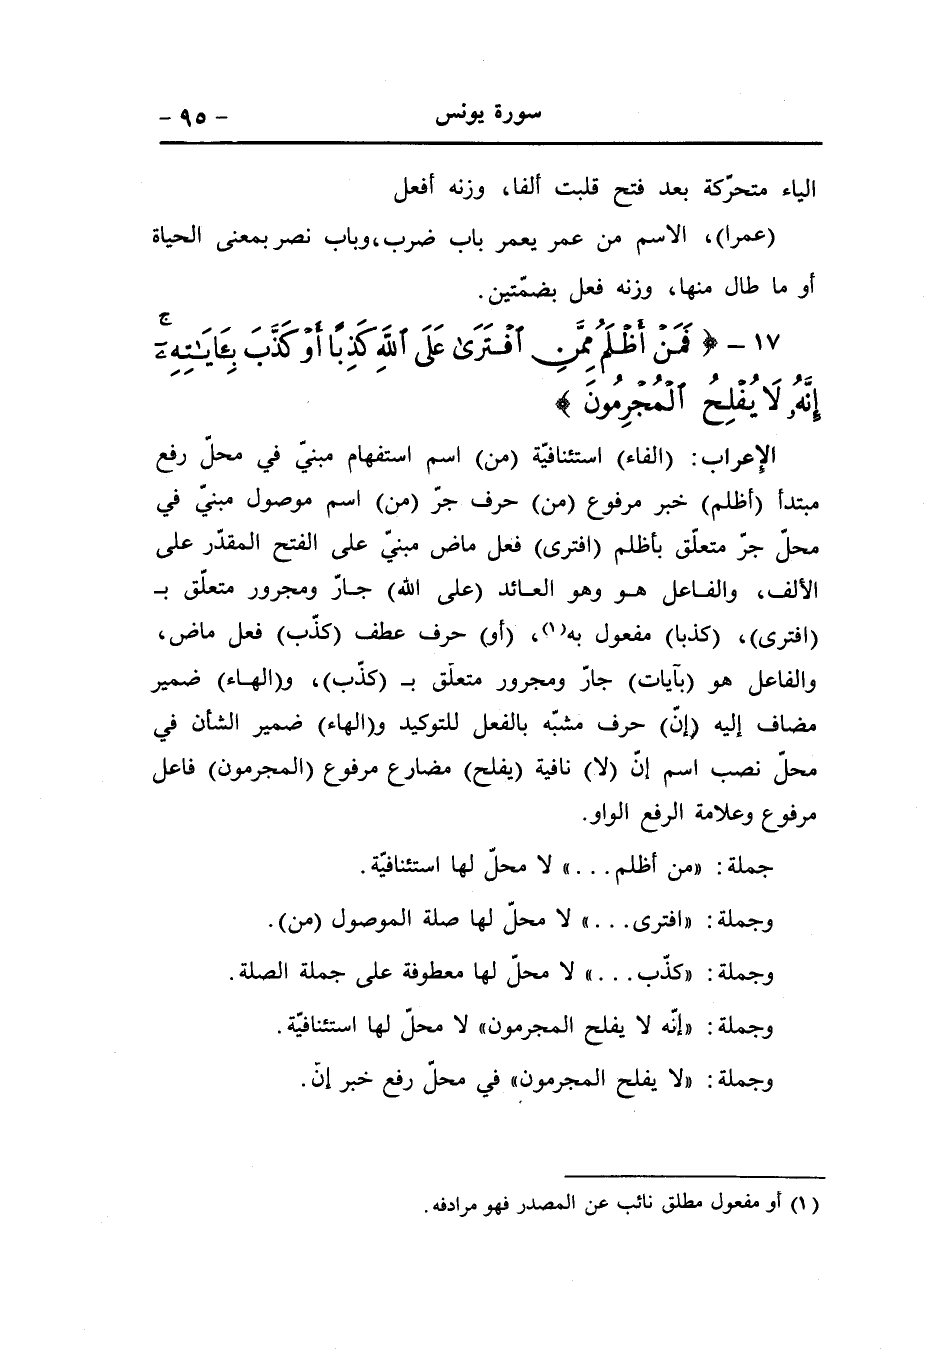 سورة يونس - ٩٥ -
الياء متحرّكة بعد فتح قلبت ألفا، وزنه أفعل
(عمرا)، الاسم من عمر يعمر باب ضرب،وباب نصر بمعنى الحياة
أو ما طال منها، وزنه فعل بضمّتين.
١٧ - ﴿ فَمَنْ أَظْلَمُ مِمَّنِ ٱفْتَرَىٰ عَلَى ٱللَّهِ كَذِبًا أَوْ كَذَّبَ بِـَٔايَـٰتِهِۦٓ ۚ
إِنَّهُۥ لَا يُفْلِحُ ٱلْمُجْرِمُونَ ﴾
الإعراب: (الفاء) استئنافيّة (من) اسم استفهام مبنيّ في محلّ رفع
مبتدأ (أظلم) خبر مرفوع (من) حرف جرّ (من) اسم موصول مبنيّ في
محلّ جرّ متعلّق بأظلم (افترى) فعل ماض مبنيّ على الفتح المقدّر على
الألف، والفاعل هو وهو العائد (على الله) جارّ ومجرور متعلّق بـ
(افترى)، (كذبا) مفعول به(١)، (أو) حرف عطف (كذّب) فعل ماض،
والفاعل هو (بآيات) جارّ ومجرور متعلّق بـ (كذّب)، و(الهاء) ضمير
مضاف إليه (إنّ) حرف مشبّه بالفعل للتوكيد و(الهاء) ضمير الشأن في
محلّ نصب اسم إنّ (لا) نافية (يفلح) مضارع مرفوع (المجرمون) فاعل
مرفوع وعلامة الرفع الواو.
جملة: «من أظلم...» لا محلّ لها استئنافيّة.
وجملة: «افترى...» لا محلّ لها صلة الموصول (من).
وجملة: «كذّب...» لا محلّ لها معطوفة على جملة الصلة.
وجملة: «إنّه لا يفلح المجرمون» لا محلّ لها استئنافيّة.
وجملة: «لا يفلح المجرمون» في محلّ رفع خبر إنّ.
(١) أو مفعول مطلق نائب عن المصدر فهو مرادفه.